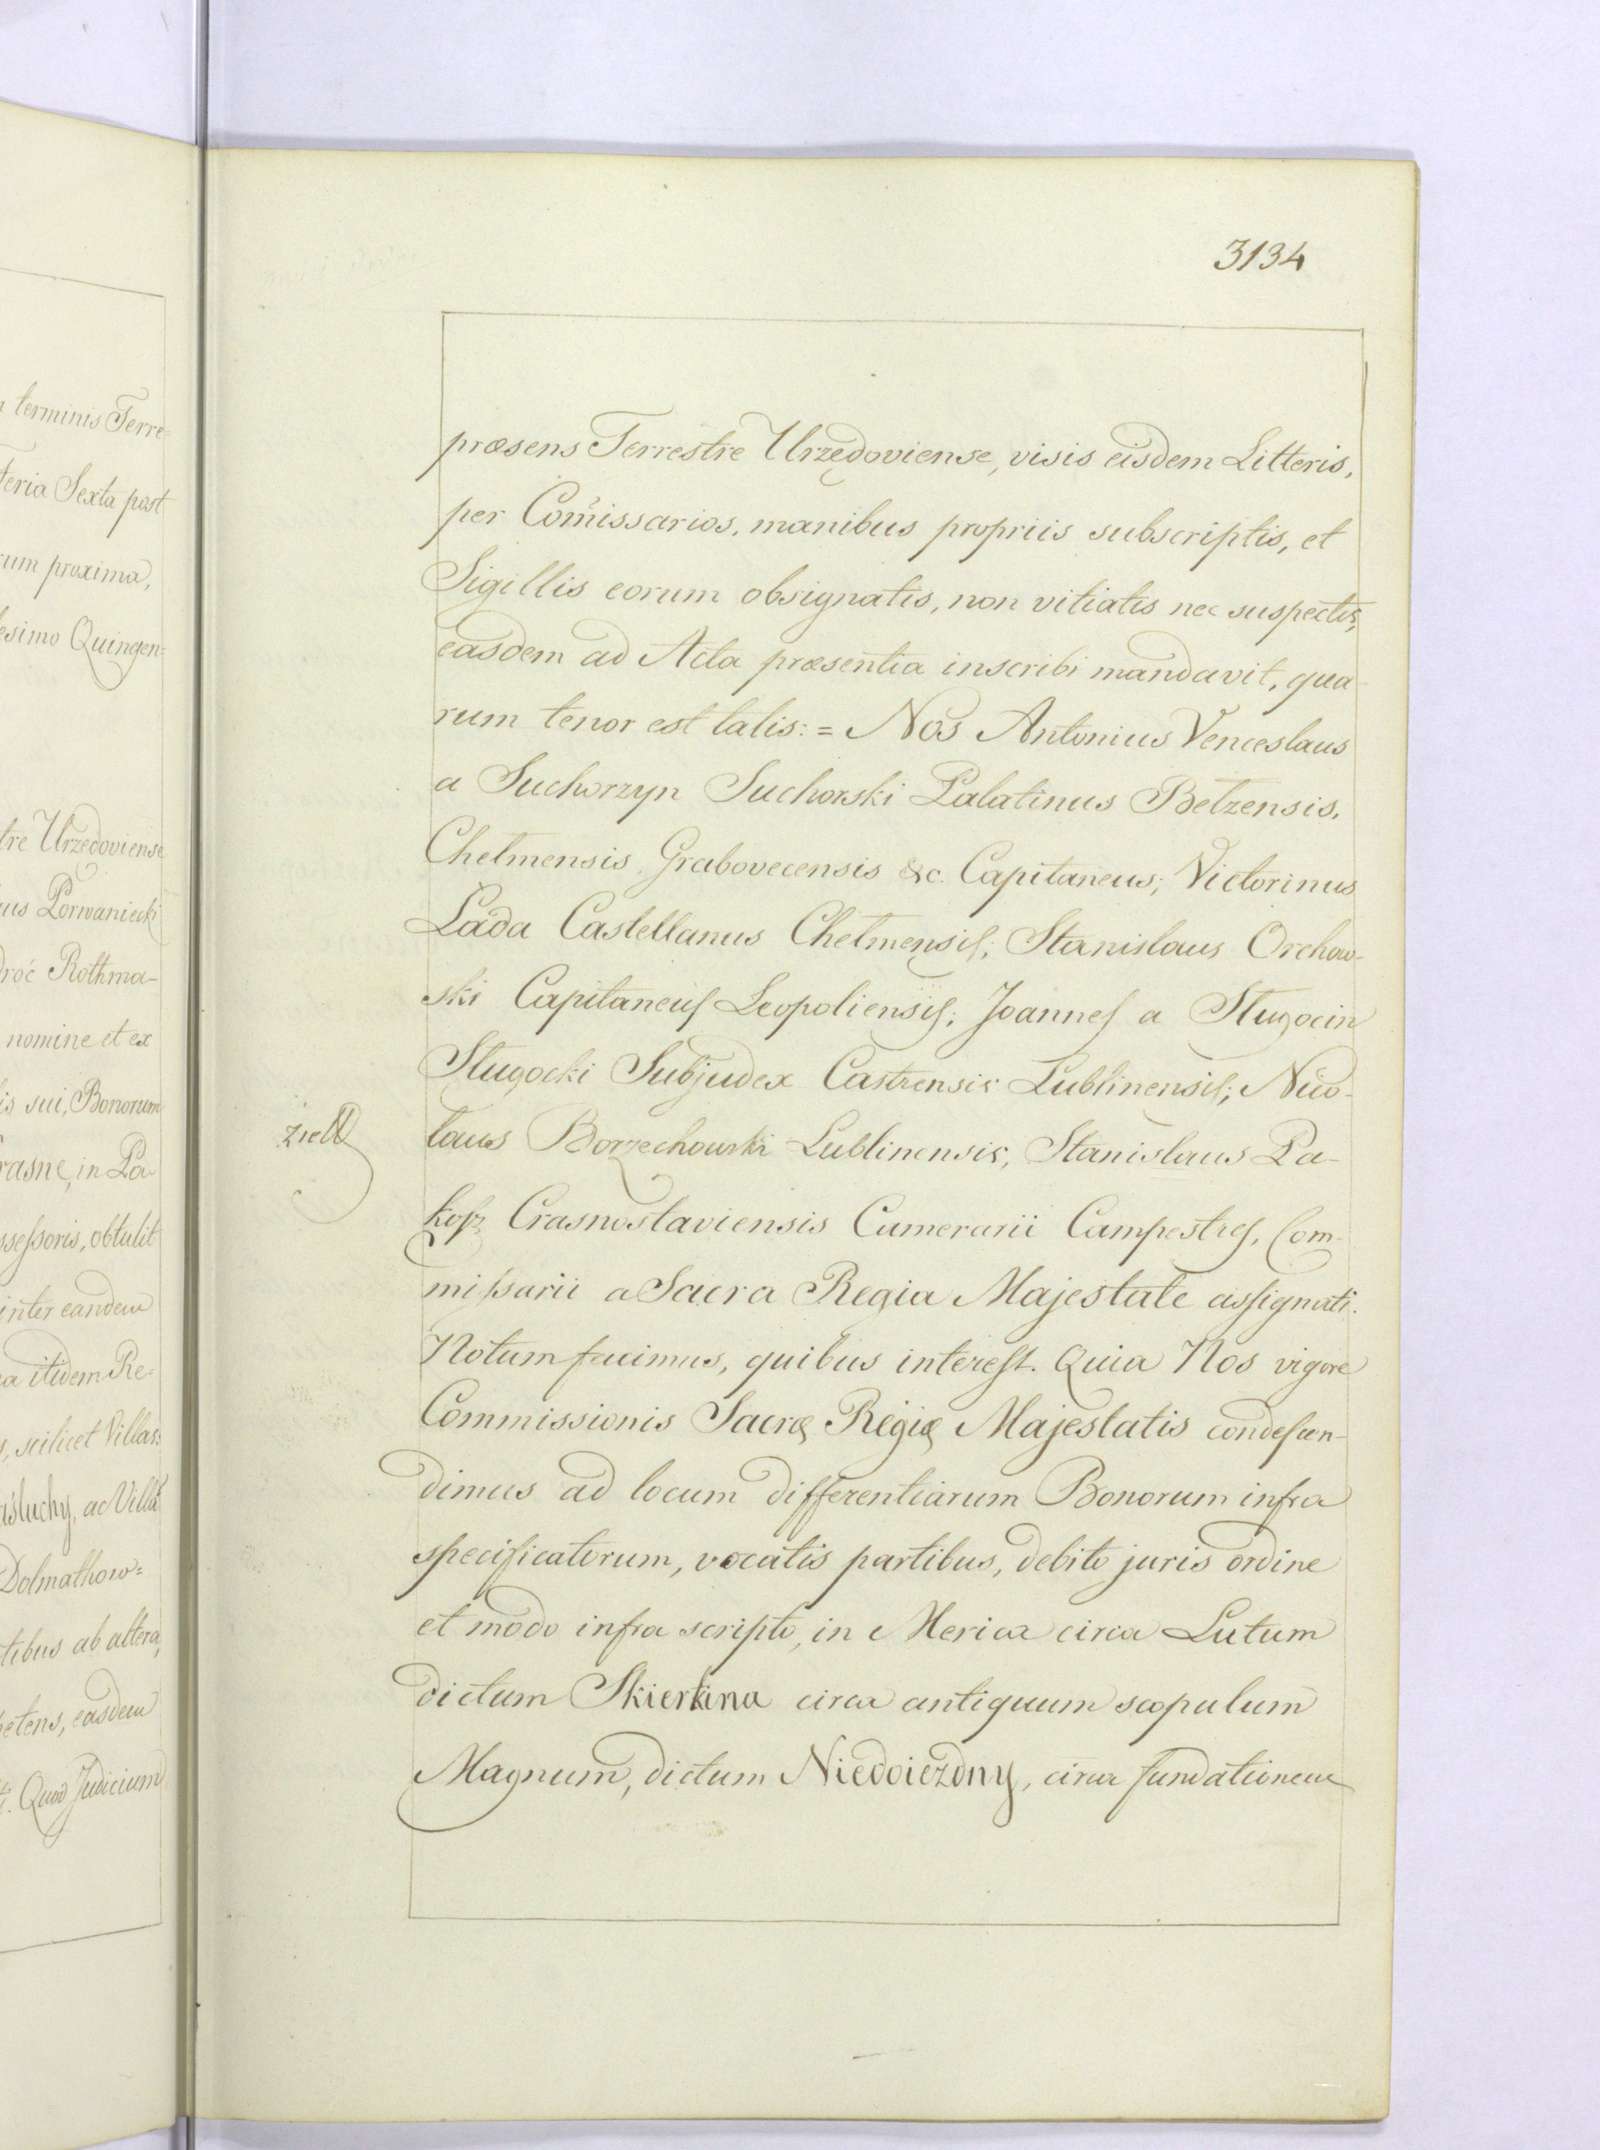 n terminis Terre=
Feria Sexta post
rum proxima,
lesimo Quingen=
tre Urzedoviense
us Porwaniecki
droć Rothma-
nomine et ex
is sui, Bonorum
rasne, in Pa-
ssessoris, obtulit
inter eandem
a itidem Re=
s, scilicet Villas:
asłuchy, ac Villa
Dolmathow=
tibus ab altera,
petens, easdem
Quod Judicium
3134
præsens Terrestre Urzędoviense, visis eisdem Litteris,
per Comissarios, manibus propriis subscriptis, et
Sigillis eorum obsignatis, non vitiatis nec suspectis,
easdem ad Acta præsentia inscribi mandavit, qua-
rum tenor est talis: = Nos Antonius Venceslaus
a Suchorzyn Suchorski Palatinus Betzensis,
Chelmensis Grabovecensis &c. Capitaneus; Victorinus
Łada Castellanus Chelmensis; Stanislaus Orchow-
ski Capitaneus Leopoliensis; Joannes a Sługocin
Sługocki Subjudex Castrensis Lublinensis; Nico-
laus Borzechowski Lublinensis, Stanislaus Pa-
kosz Crasnostaviensis Camerarii Campestres, Com-
missarii a Sacra Regia Majestate assignati.
Notum facimus, quibus interest. Quia Nos vigore
Commissionis Sacræ Regiæ Majestatis condescen-
dimus ad locum differentiarum Bonorum infra
specificatorum, vocatis partibus, debito juris ordine
et modo infra scripto, in Merica circa Lutum
dictum Skierkina circa antiquum scopulum
Magnum, dictum Niedoiezdny, circa fundationem